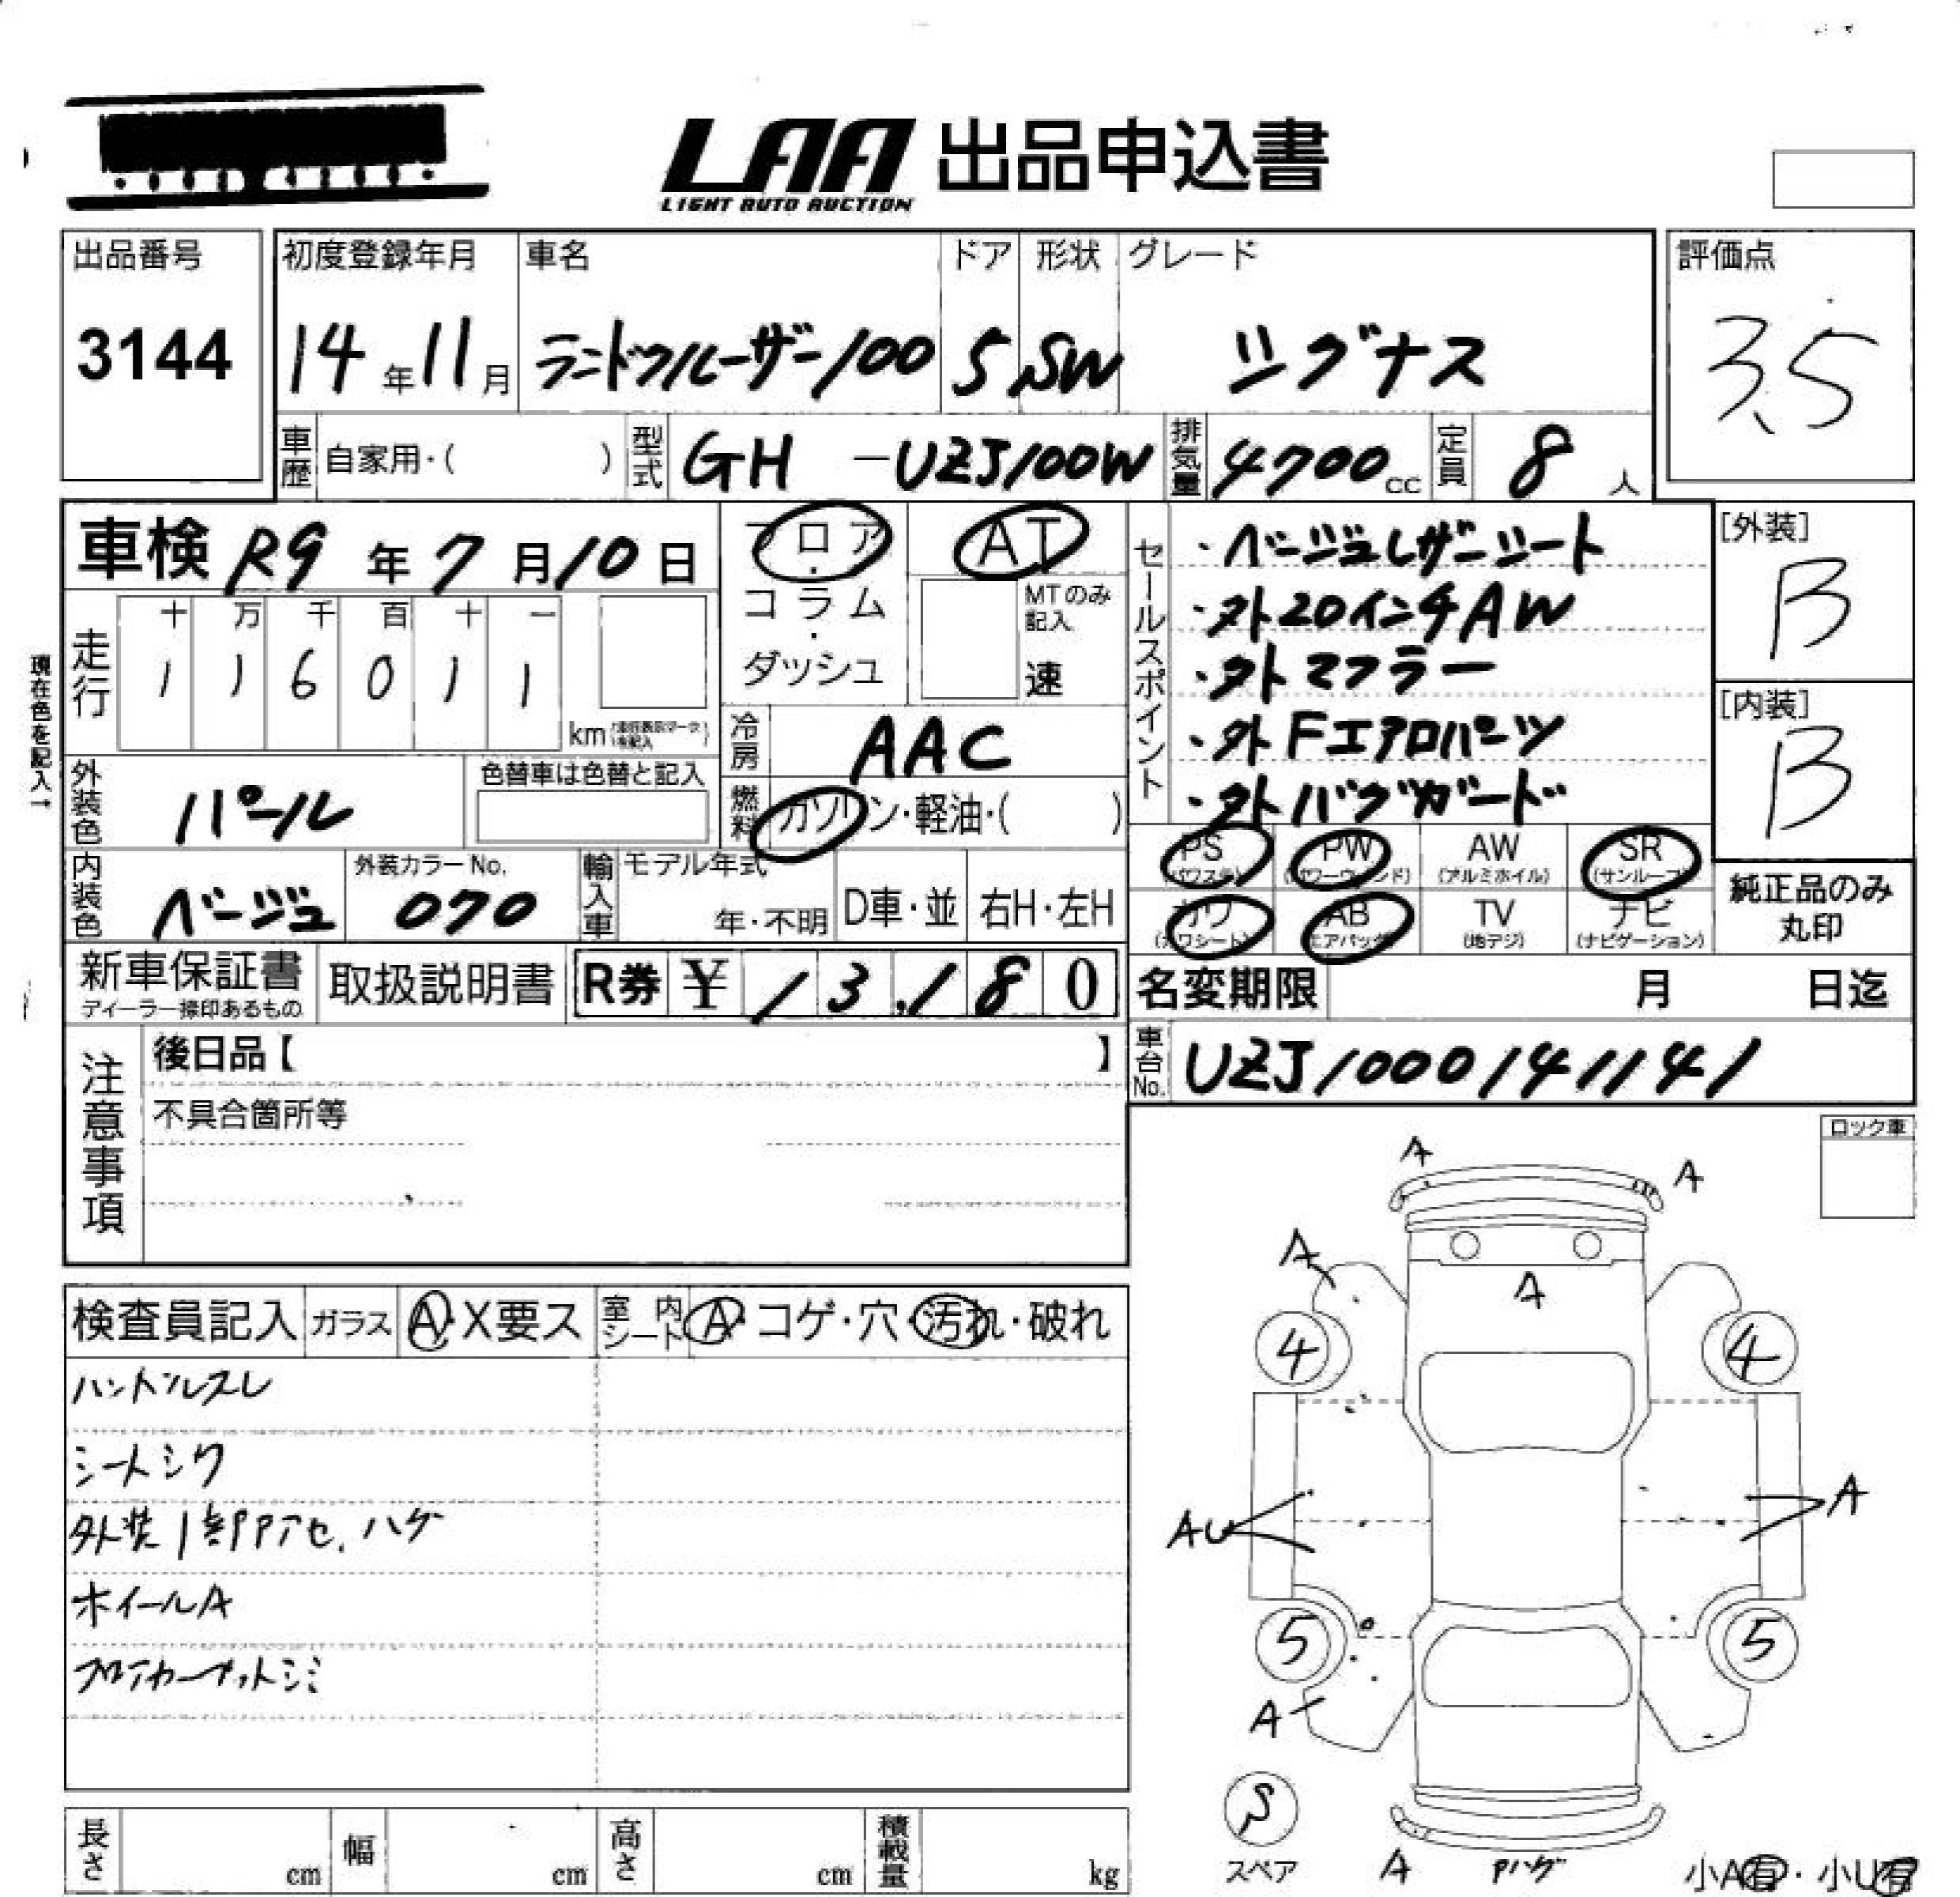 LAA 出品申込書
LIGHT AUTO AUCTION
出品番号
3144
初度登録年月
14年11月
車名
ランドクルーザー100
ドア
5
形状
SW
グレード
シグナス
評価点
3.5
車歴 自家用・( )
型式 GH-UZJ100W
排気量 4700cc
定員 8人
車検 R9年7月10日
フロア・コラム・ダッシュ
AT
MTのみ記入
速
走行
十 万 千 百 十 一
1 1 6 0 1 1
km
現在色を記入→
冷房 AAC
燃料 ガソリン・軽油・( )
外装色 パール
色替車は色替と記入
内装色 ベージュ
外装カラーNo.
070
輸入車
モデル年式
年・不明
D車・並
右H・左H
セールスポイント
・ベージュレザーシート
・外20インチAW
・外マフラー
・外Fエアロバンパーツ
・外バグガード
[外装]
B
[内装]
B
PS (パワステ)
PW (パワーウィンド)
AW (アルミホイル)
SR (サンルーフ)
カワ (カワシート)
AB (エアバッグ)
TV (地デジ)
ナビ (ナビゲーション)
純正品のみ
丸印
新車保証書
ディーラー捺印あるもの
取扱説明書
R券 ¥13,180
名変期限 月 日迄
車台No. UZJ1000141141
注意事項
後日品【 】
不具合箇所等
ロック車
検査員記入
ガラス A・X要ス
室内シート A・コゲ・穴・汚れ・破れ
ハンドルスレ
シートシワ
外装1部Pアセ、ハゲ
ホイールA
フロアカーペットシミ
A
A
A
A
4
4
AU
A
5
5
A
S
スペア
A
Pハゲ
小A有・小U有
長さ cm
幅 cm
高さ cm
積載量 kg